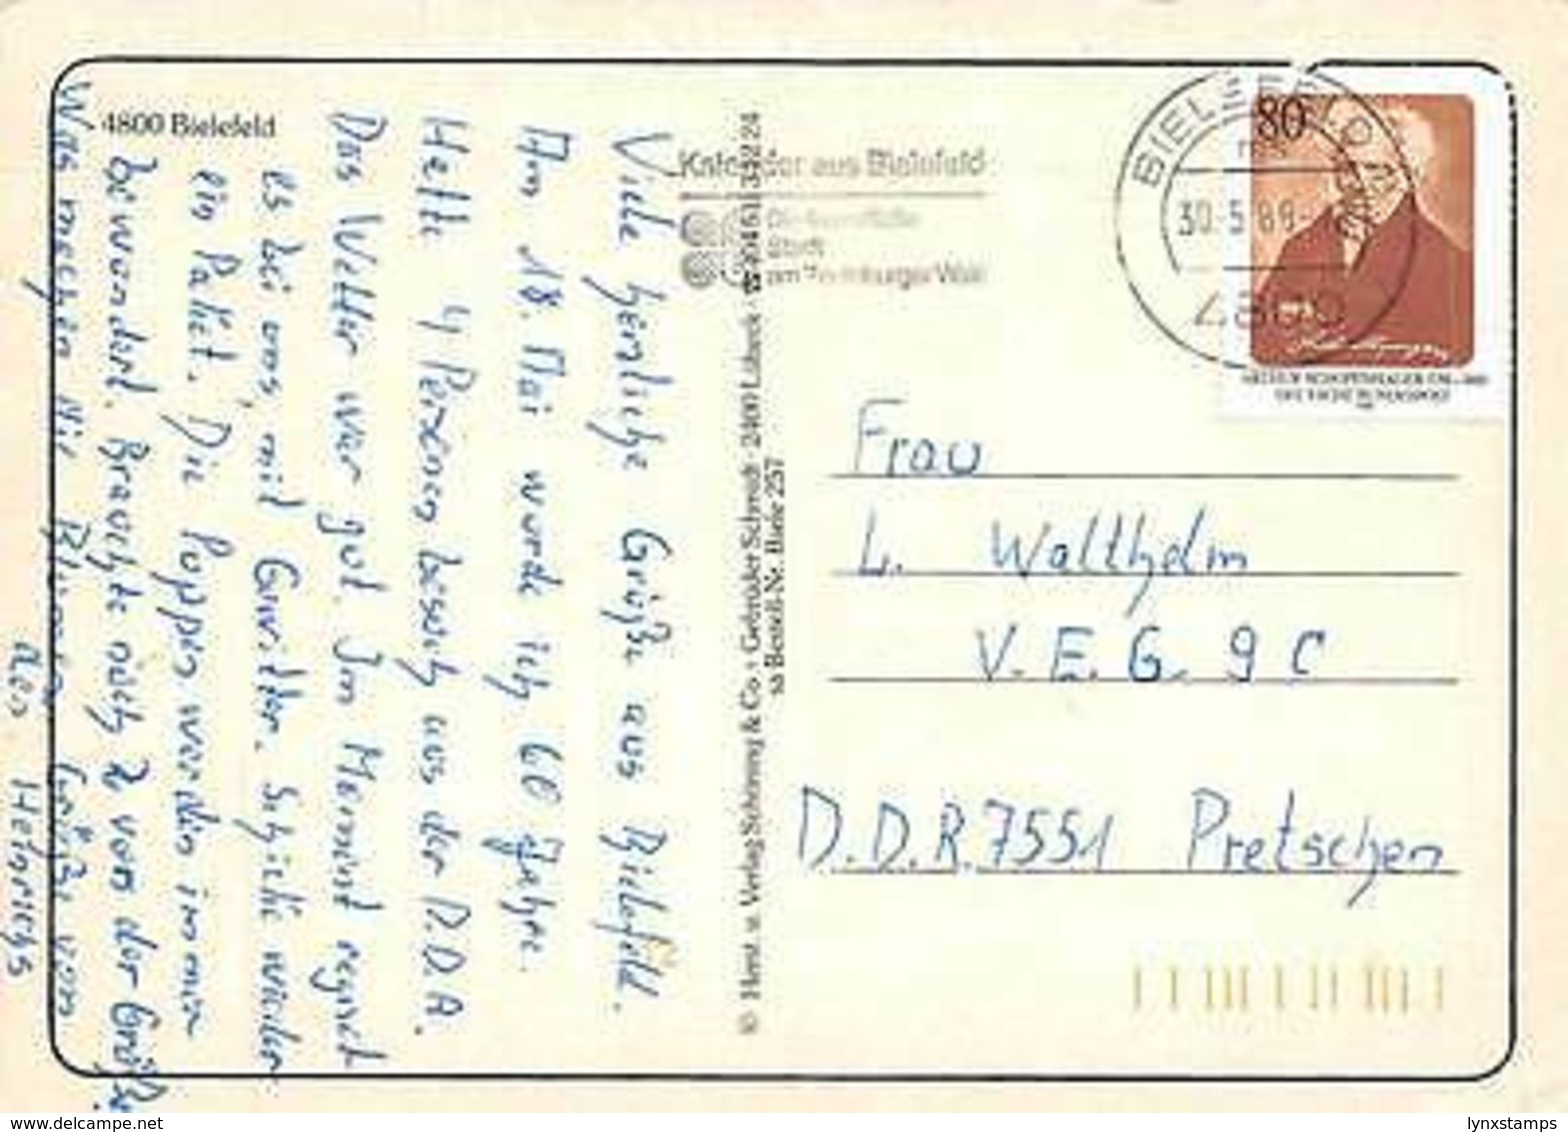 4800 Bielefeld
Viele herzliche Grüße aus Bielefeld.
Am 18. Mai wurde ich 60 Jahre.
Hatte 4 Personen besuch aus der D.D.R.
Das Wetter war gut. Im Moment regnet
es bei uns, mit Gewitter. Schicke wieder
ein Paket. Die Puppen werden immer
bewundert. Brauchte noch 2 von der Größe.
Was machen die Blumen Grüße von
Heinrichs
© Herst. u. Verlag Schöning & Co + Gebrüder Schmidt · 2400 Lübeck · ☎ 0461/31224
sa Bestell-Nr. Biele 257
aus Bielefeld
Stadt
am Teutoburger Wald
BIELEFELD
30.5.89
4800
80
ARTHUR SCHOPENHAUER 1788-1860
DEUTSCHE BUNDESPOST
Frau
L. Wallhelm
V.E.G. 9C
D.D.R. 7551 Pretschen
lynxstamps